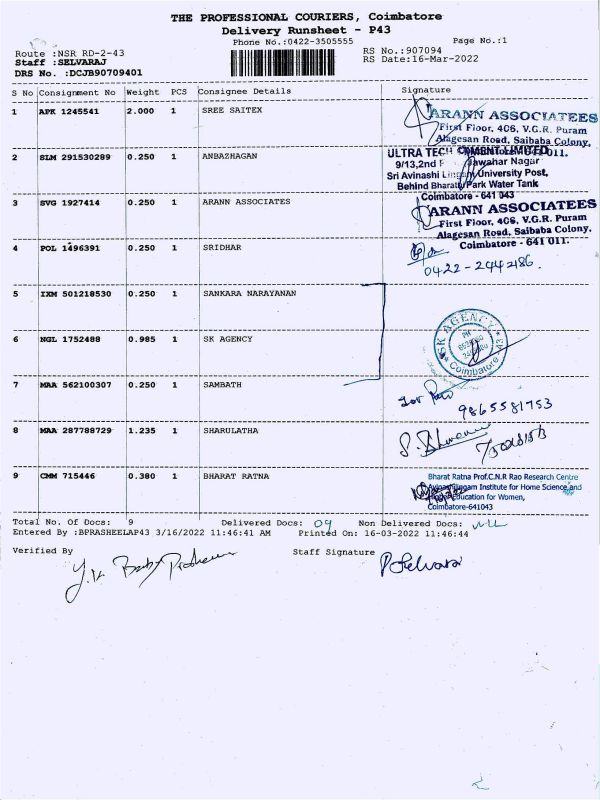 THE PROFESSIONAL COURIERS, Coimbatore
Delivery Runsheet - P43
Phone No.:0422-3505555 Page No.:1
Route :NSR RD-2-43 RS No.:907094
Staff :SELVARAJ RS Date:16-Mar-2022
DRS No. :DCJB90709401
S No Consignment No Weight PCS Consignee Details Signature
1 APK 1245541 2.000 1 SREE SAITEX
ARANN ASSOCIATEES
First Floor, 406, V.G.R. Puram
Alagesan Road, Saibaba Colony,
2 SLM 291530289 0.250 1 ANBAZHAGAN
ULTRA TECH CEMENT LIMITED
9/13,2nd F Jawahar Nagar
Sri Avinashi Lingam University Post,
Behind Bharati Park Water Tank
Coimbatore - 641 043
3 SVG 1927414 0.250 1 ARANN ASSOCIATES
ARANN ASSOCIATEES
First Floor, 406, V.G.R. Puram
Alagesan Road, Saibaba Colony,
Coimbatore - 641 011.
4 POL 1496391 0.250 1 SRIDHAR
5 IXM 501218530 0.250 1 SANKARA NARAYANAN
6 NGL 1752488 0.985 1 SK AGENCY
SK AGENCY
Coimbatore - 43
7 MAA 562100307 0.250 1 SAMBATH
9865581753
8 MAA 287788729 1.235 1 SHARULATHA
9 CMM 715446 0.380 1 BHARAT RATNA
Bharat Ratna Prof.C.N.R Rao Research Centre
Avinashilingam Institute for Home Science and
Higher Education for Women,
Coimbatore-641043
Total No. Of Docs: 9 Delivered Docs: 09 Non Delivered Docs: NIL
Entered By :BPRASHEELAP43 3/16/2022 11:46:41 AM Printed On: 16-03-2022 11:46:44
Verified By Staff Signature